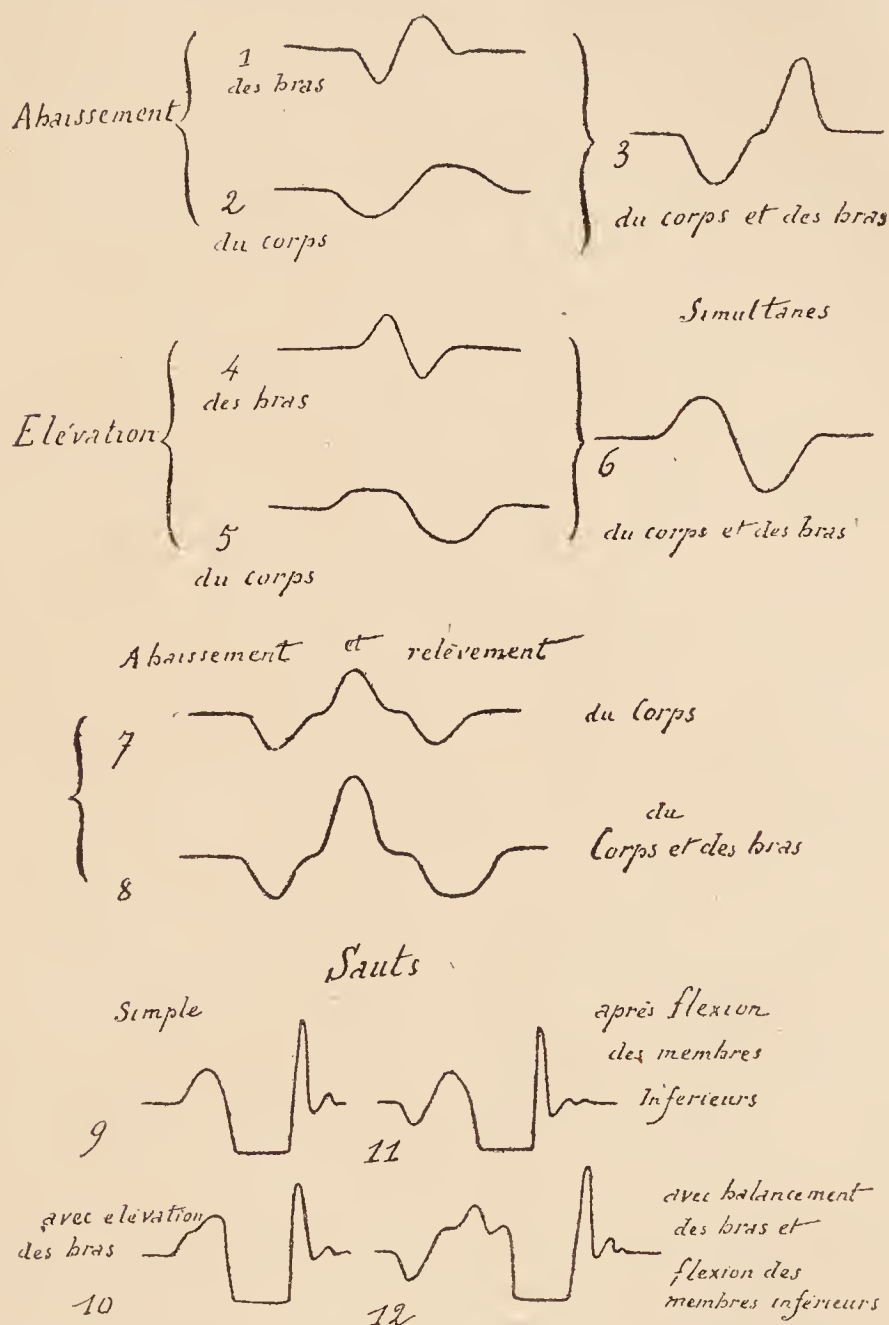 Abaissement
1
des bras
2
du corps
3
du corps et des bras
Simultanes
Elévation
4
des bras
5
du corps
6
du corps et des bras
Abaissement et relèvement
7
du Corps
8
du
Corps et des bras
Sauts
Simple
9
après flexion
des membres
Inferieurs
11
avec elévation
des bras
10
avec balancement
des bras et
flexion des
membres inférieurs
12